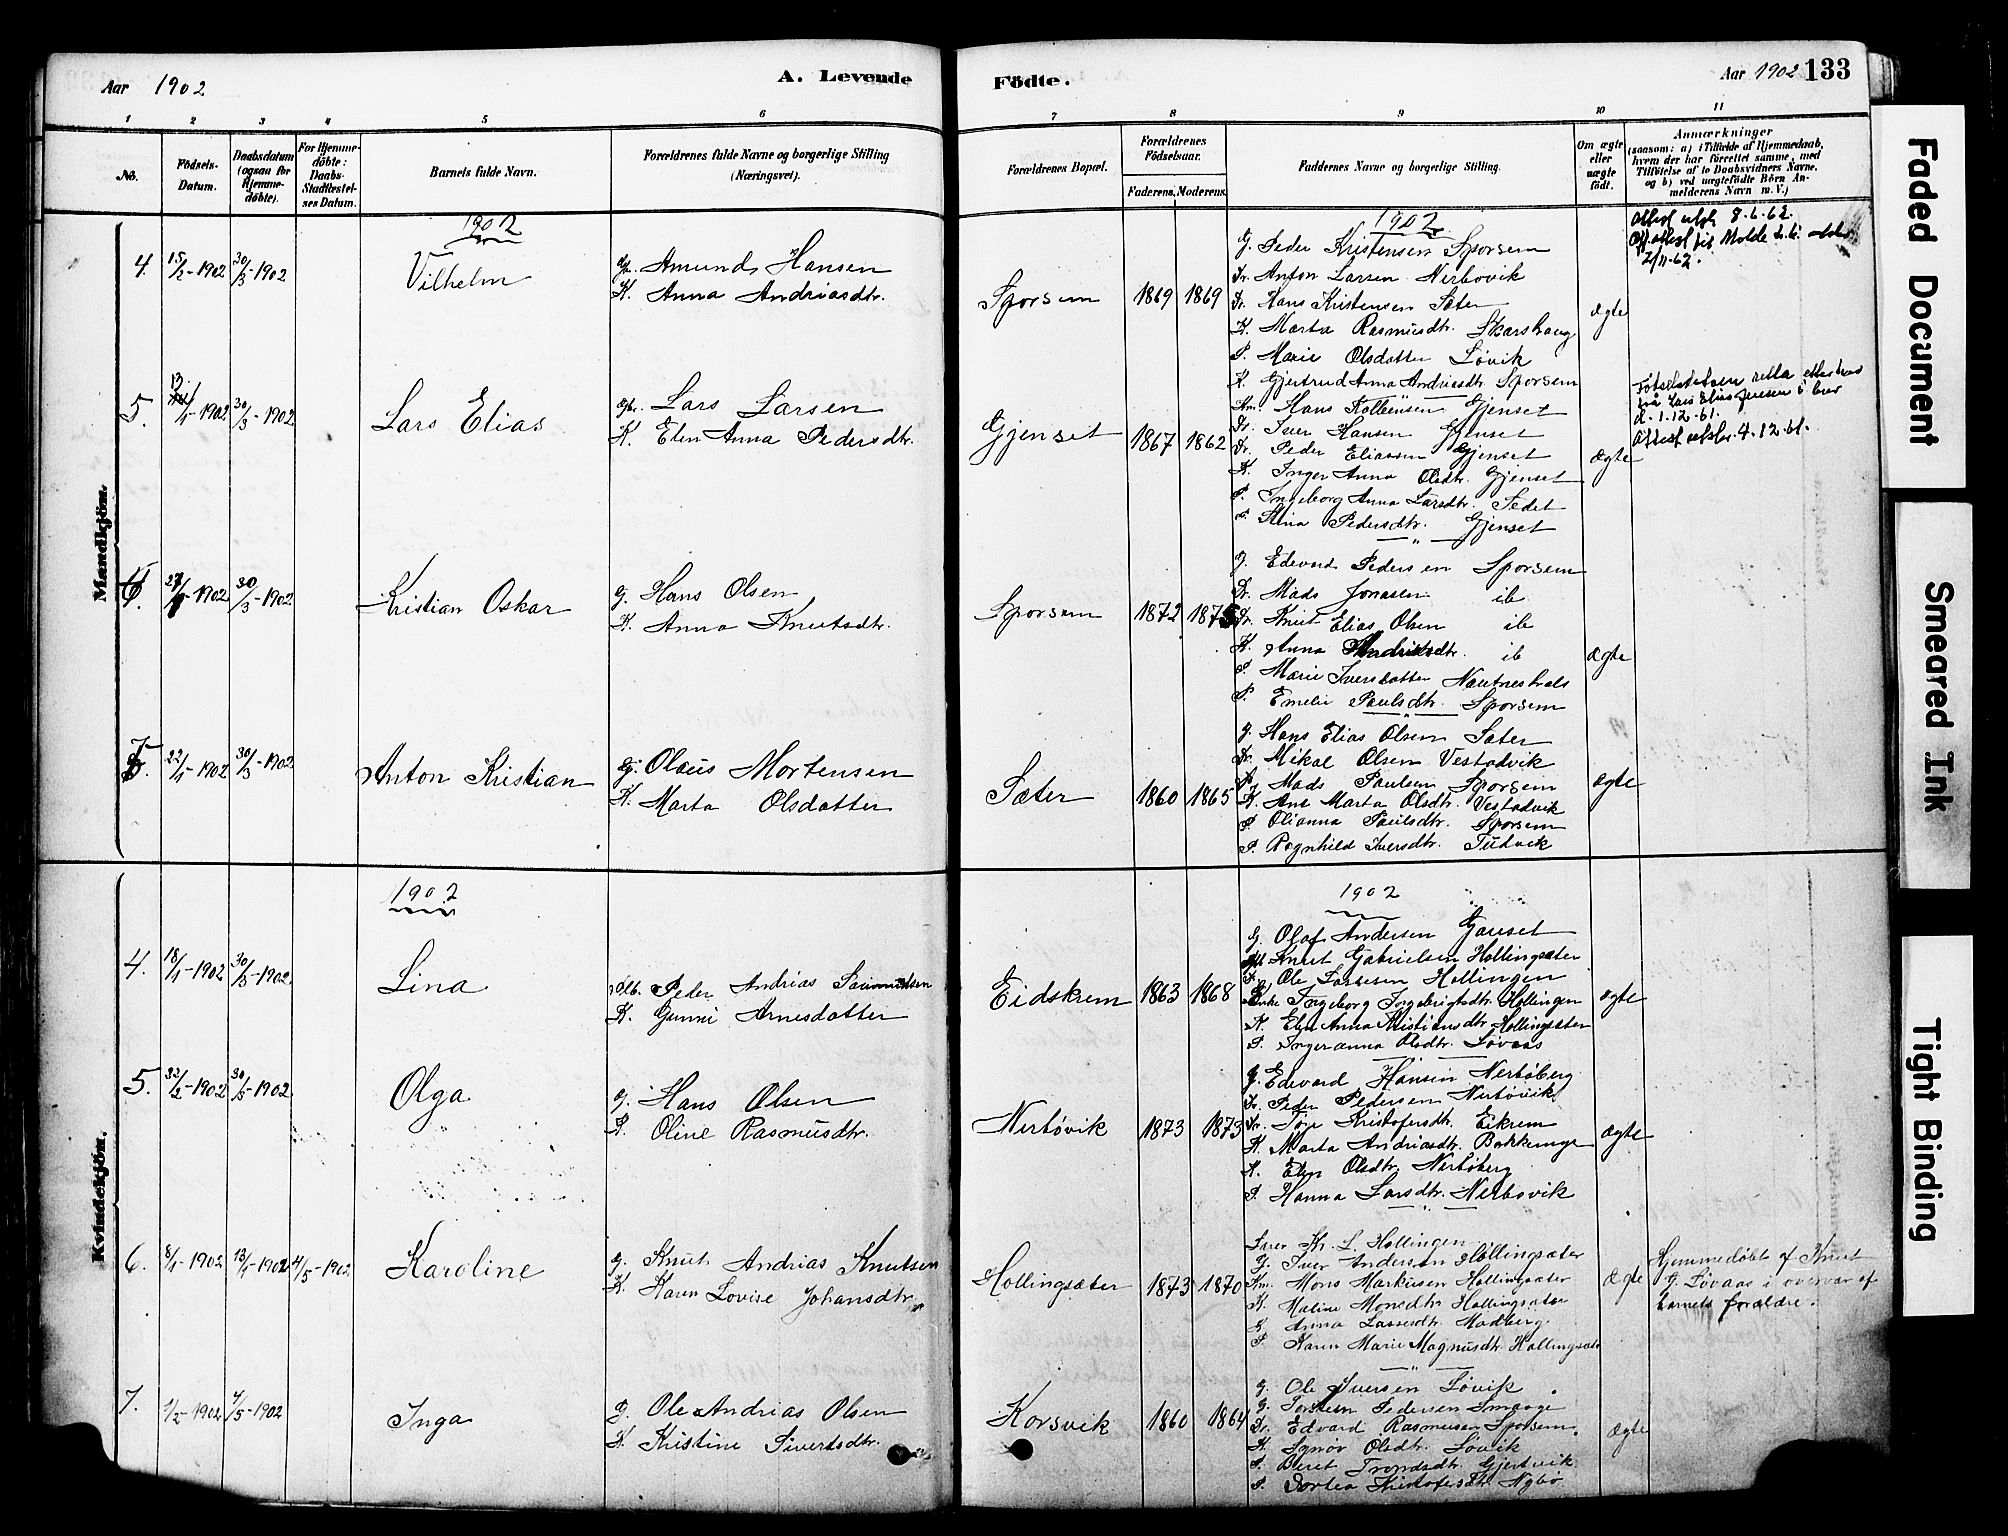 Aar 1902
A. Levende
Födte.
Aar 1902 133
1 2 3 4 5 6 7 8 9 10 11
No.
Födsels-
Datum.
Daabsdatum
(ogsaa for
Hjemme-
döbte).
For Hjemme-
döbte:
Daabs-
Stadfæstel-
ses Datum.
Barnets fulde Navn.
Forældrenes fulde Navne og borgerlige Stilling
(Næringsvei).
Forældrenes Bopæl.
Forældrenes
Födselsaar.
Faderens. Moderens.
Faddernes Navne og borgerlige Stilling.
Om ægte
eller
uægte
födt.
Anmærkninger
(saasom: a) i Tilfælde af Hjemmedaab,
hvem der har forrettet samme, med
Tilföielse af to Daabsvidners Navne,
og b) ved uægtefödte Börn An-
melderens Navn m. V.)
Mandkjön.
1902
4. 15/2-1902 30/3-1902
Vilhelm
Amund Hansen
K. Anna Andriasdtr.
Sporsem 1869 1869
1902
G. Peder Kristensen Sporsem
Dr. Anton Larsen Nerbøvik
Dr. Hans Kristensen Sæter
K. Marta Rasmusdtr. Skarshaug
P. Marie Olsdatter Løvik
K. Gjertrud Anna Andriasdtr Sporsem
ægte
Attest utst. 8.6.62.
2/11-62.
5. 13/1-1902 30/3-1902
Lars Elias
Lars Larsen
K. Elen Anna Pedersdtr.
Gjenset 1867 1862
Km. Hans Kolbeinsen Gjenset
Dr. Iver Hansen Gjenset
Dr. Peder Eliassen Gjenset
K. Inger Anna Olsdtr. Gjenset
P. Ingeborg Anna Larsdtr. Sedet
P. Stina Pedersdtr. Gjenset
ægte
d. 1.12.61.
Attest utstr. 4.12.61.
6. 27/1-1902 30/3-1902
Kristian Oskar
G. Hans Olsen
K. Anna Knutsdtr.
Sporsem 1872 1875
G. Edvard Pedersen Sporsem
Dr. Mads Jonassen ib
Dr. Knut Elias Olsen ib
K. Anna Andriasdtr. ib
P. Marie Iversdatter Nautneshals
P. Emelie Paulsdtr. Sporsem
ægte
7. 22/1-1902 30/3-1902
Anton Kristian
G. Olaus Mortensen
K. Marta Olsdatter
Sæter 1860 1865
G. Hans Elias Olsen Sæter
Dr. Mikal Olsen Vestadvik
Mads Paulsen Sporsem
K. Ane Marta Olsdtr. Vestadvik
P. Olianna Paulsdtr. Sporsem
P. Ragnhild Iversdtr. Tudvik
ægte
Kvindekjön.
1902
4. 18/1-1902 30/3-1902
Lina
Peder Andrias Sæmundsen
K. Gunni Arnesdatter
Eidskrem 1863 1868
1902
G. Olaf Andersen Gauset
Knut Gabrielsen Hollingsæter
Ole Larsen Hollingen
Enke Ingeborg Ingebrigtsdtr. Hollingen
K. Elen Anna Kristiansdtr Hollingsæter
P. Ingeranna Olsdtr. Løvaas
ægte
5. 1902 30/3-1902
Olga
G. Hans Olsen
K. Oline Rasmusdtr.
Nerbøvik 1873 1873
G. Edvard Hansen Nerbøberg
Dr. Peder Pedersen Nerbøvik
Dr. Tore Kristofersdtr. Eikrem
K. Marta Andriasdtr. Bakkeunge
K. Elen Olsdtr. Nerbøberg
P. Hanna Larsdtr. Nerbøvik
ægte
6. 8/1-1902 13/1-1902 4/5-1902
Karoline
G. Knut Andrias Knutsen
K. Karen Lovise Johansdtr.
Hollingsæter 1873 1870
Lærer Kr. L. Hollingen
G. Iver Andersen Hollingsæter
Km. Mons Markusen Hollingsæter
K. Maline Monsdtr. Hollingsæter
K. Anna Lassesdtr. Madberg.
P. Karen Marie Magnusdtr Hollingsæter
ægte
Hjemmedøbt af Knut
G. Løvaas i overvær af
barnets forældre.
7. 1/2-1902 4/5-1902
Inga
G. Ole Andrias Olsen
K. Kristine Sivertsdtr.
Korsvik 1860 1864
G. Ole Iversen Løvik
G. Torstein Pedersen Smaage
Dr. Edvard Rasmussen Sporsem.
K. Synøv Olsdtr. Løvik
P. Beret Trondsdtr. Gjertvik
P. Dortea Kristofersdtr. Nybø
ægte
Faded Document
Smeared Ink
Tight Binding